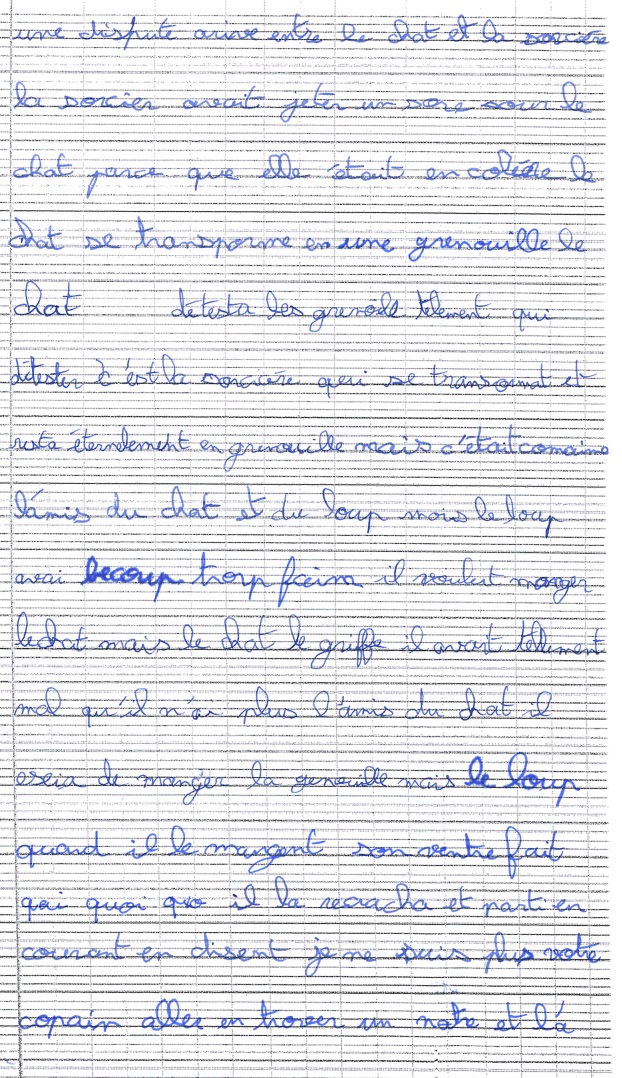 une dispute arive entre le chat et la sorcière
la sorcien avait jeter un sore sour le
chat parce que elle était en colière le
chat se transporme en une grenouille le
chat détesta les grenoile télement qui
détester c'est la sorcière qui se transomat et
resta éterndement en grenouille mais c'était comaime
l'amis du chat et du loup mais le loup
avai becoup trop faim il voulut manger
le chat mais le chat le griffe il avait tellement
mal qu'il n'ai plus l'amis du chat il
eseia de manger la genouille mais le loup
quand il le mangent son ventre fait
qoi quoi quo il la recracha et parti en
courant en disent je ne suis plus votre
copain aller en trover un notre et là